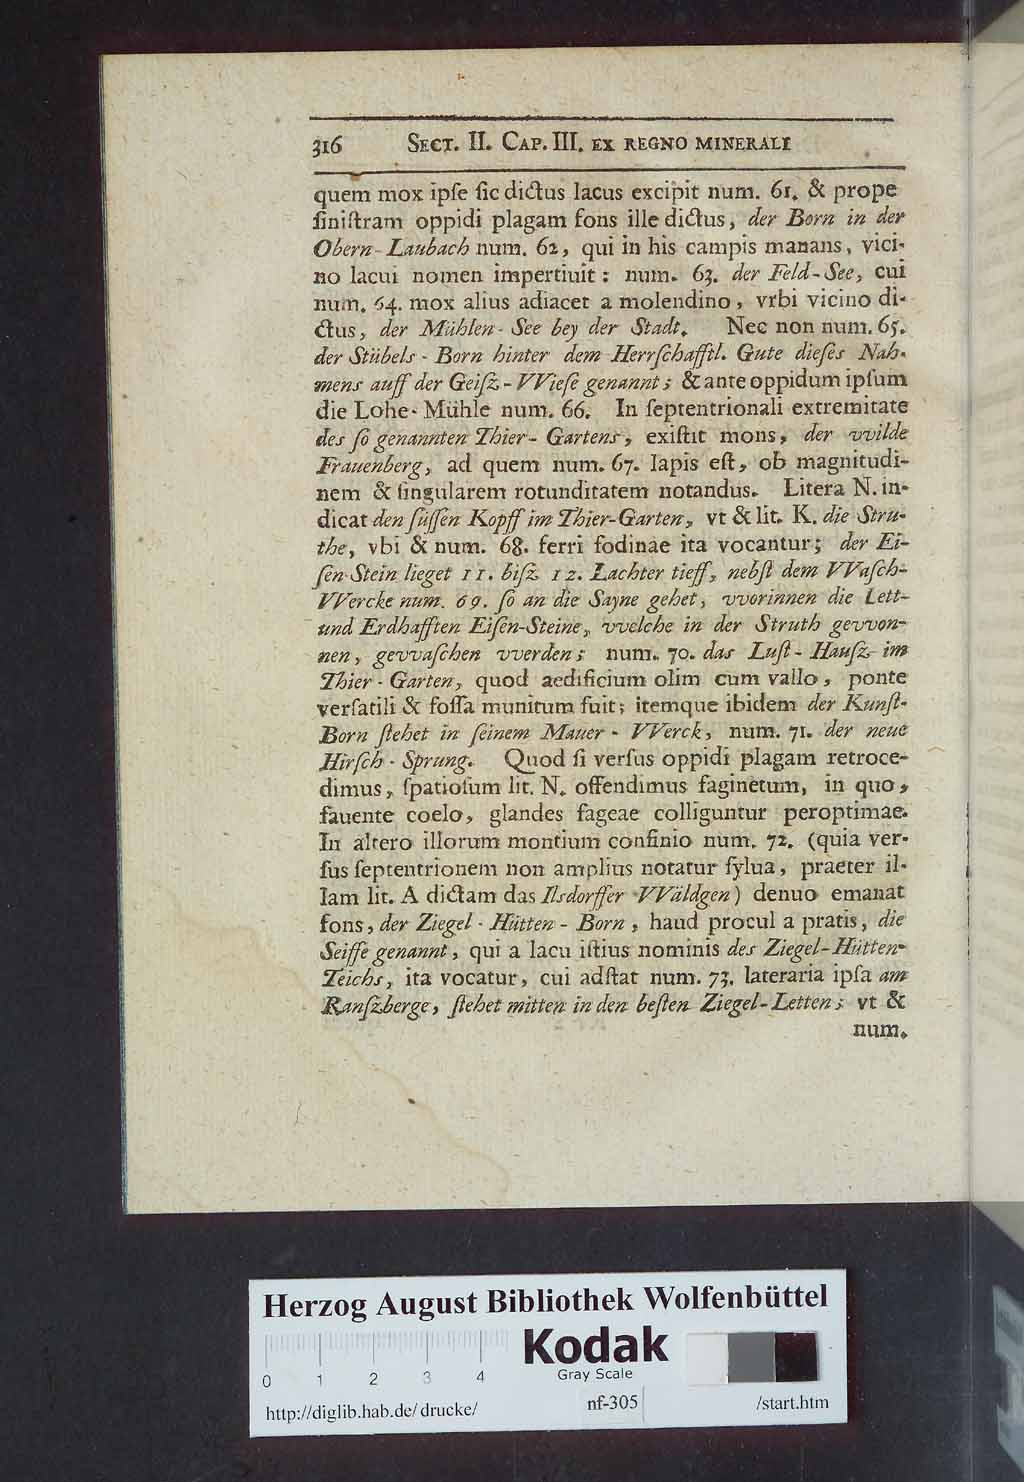 316 SECT. II. CAP. III. EX REGNO MINERALI
quem mox ipſe ſic dictus lacus excipit num. 61. & prope
ſiniſtram oppidi plagam fons ille dictus, der Born in der
Obern-Laubach num. 62, qui in his campis manans, vici-
no lacui nomen impertiuit: num. 63. der Feld-See, cui
num. 64. mox alius adiacet a molendino, vrbi vicino di-
ctus, der Mühlen-See bey der Stadt. Nec non num. 65.
der Stübels-Born hinter dem Herrſchafftl. Gute dieſes Nah-
mens auff der Geiſz-VVieſe genannt; & ante oppidum ipſum
die Lohe-Mühle num. 66. In ſeptentrionali extremitate
des ſo genannten Thier-Gartens, exiſtit mons, der vvilde
Frauenberg, ad quem num. 67. lapis eſt, ob magnitudi-
nem & ſingularem rotunditatem notandus. Litera N. in-
dicat den ſüſſen Kopff im Thier-Garten, vt & lit. K. die Stru-
the, vbi & num. 68. ferri fodinae ita vocantur; der Ei-
ſen-Stein lieget 11. biſz 12. Lachter tieff, nebſt dem VVaſch-
VVercke num. 69. ſo an die Sayne gehet, vvorinnen die Lett-
und Erdhafften Eiſen-Steine, vvelche in der Struth gevvon-
nen, gevvaſchen vverden; num. 70. das Luſt-Hauſz im
Thier-Garten, quod aedificium olim cum vallo, ponte
verſatili & foſſa munitum fuit; itemque ibidem der Kunſt-
Born ſtehet in ſeinem Mauer-VVerck, num. 71. der neue
Hirſch-Sprung. Quod ſi verſus oppidi plagam retroce-
dimus, ſpatioſum lit. N. offendimus faginetum, in quo,
fauente coelo, glandes fageae colliguntur peroptimae.
In altero illorum montium confinio num. 72. (quia ver-
ſus ſeptentrionem non amplius notatur ſylua, praeter il-
lam lit. A dictam das Ilsdorffer VVäldgen) denuo emanat
fons, der Ziegel-Hütten-Born, haud procul a pratis, die
Seiffe genannt, qui a lacu iſtius nominis des Ziegel-Hütten-
Teichs, ita vocatur, cui adſtat num. 73. lateraria ipſa am
Ranſzberge, ſtehet mitten in den beſten Ziegel-Letten; vt &
num.
Herzog August Bibliothek Wolfenbüttel
Kodak
Gray Scale
0 1 2 3 4
http://diglib.hab.de/drucke/ nf-305 /start.htm